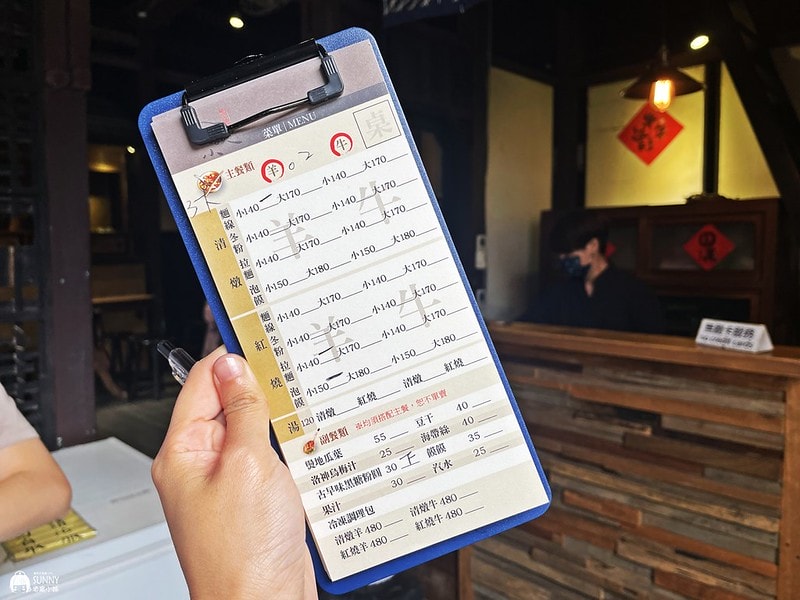 菜單 | MENU
桌
主餐類 羊 02 牛
清燉
麵線 小140 大170 小140 大170
冬粉 小140 大170 小140 大170
拉麵 小140 大170 小140 大170
泡饃 小150 大180 小150 大180
羊 牛
紅燒
麵線 小140 大170 小140 大170
冬粉 小140 大170 小140 大170
拉麵 小140 大170 小140 大170
泡饃 小150 大180 小150 大180
羊 牛
湯 120 清燉 紅燒 清燉 紅燒
副餐類 ※均須搭配主餐，恕不單賣
燙地瓜葉 55 豆干 40
洛神烏梅汁 25 海帶絲 40
古早味黑糖粉圓 30 饃饃 35
果汁 30 汽水 25
冷凍調理包
清燉羊480 清燉牛480
紅燒羊480 紅燒牛480
無刷卡服務
SUNNY